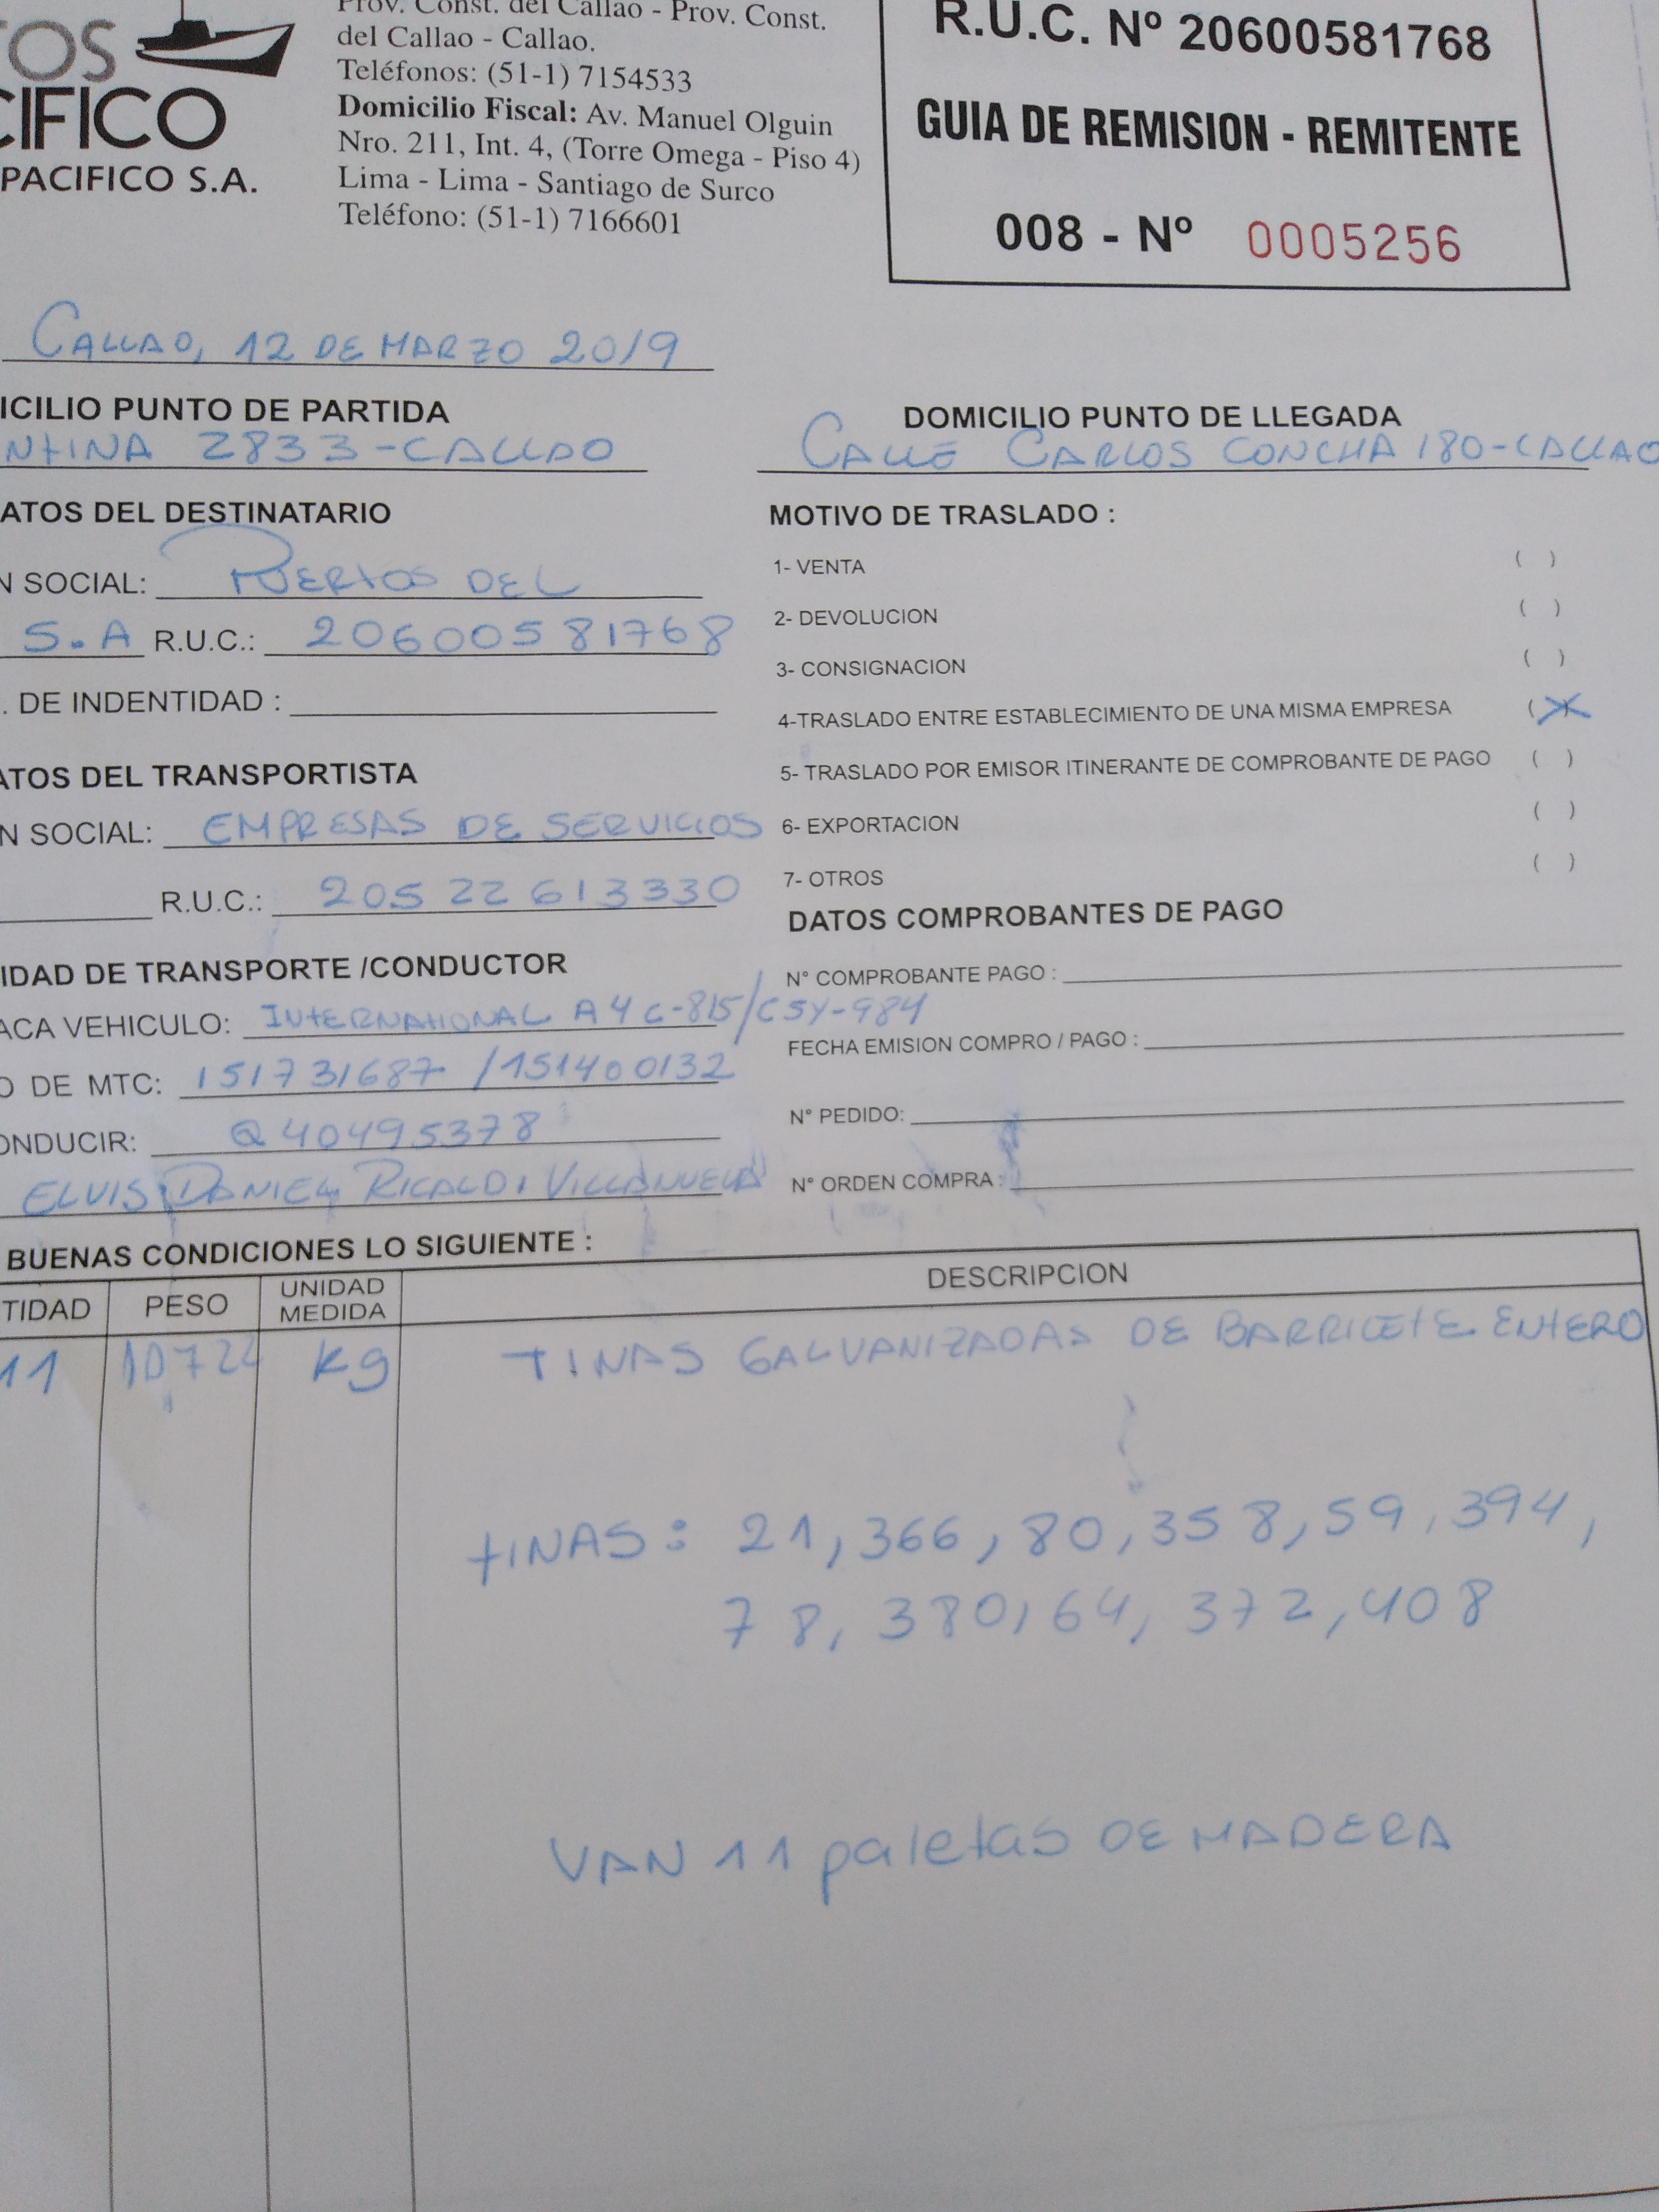 Prov. Const. del Callao - Prov. Const.
del Callao - Callao.
Teléfonos: (51-1) 7154533
Domicilio Fiscal: Av. Manuel Olguin
Nro. 211, Int. 4, (Torre Omega - Piso 4)
Lima - Lima - Santiago de Surco
Teléfono: (51-1) 7166601
TOS
CIFICO
PACIFICO S.A.
R.U.C. Nº 20600581768
GUIA DE REMISION - REMITENTE
008 - Nº 0005256
CALLAO, 12 DE MARZO 2019
ICILIO PUNTO DE PARTIDA
NTINA 2833-CALLAO
DOMICILIO PUNTO DE LLEGADA
CALLE CARLOS CONCHA 180-CALLAO
ATOS DEL DESTINATARIO
N SOCIAL: PUERTOS DEL
S.A R.U.C.: 20600581768
. DE INDENTIDAD :
MOTIVO DE TRASLADO :
1- VENTA ( )
2- DEVOLUCION ( )
3- CONSIGNACION ( )
4-TRASLADO ENTRE ESTABLECIMIENTO DE UNA MISMA EMPRESA (X)
5- TRASLADO POR EMISOR ITINERANTE DE COMPROBANTE DE PAGO ( )
6- EXPORTACION ( )
7- OTROS ( )
ATOS DEL TRANSPORTISTA
N SOCIAL: EMPRESAS DE SERVICIOS
R.U.C.: 20522613330
DATOS COMPROBANTES DE PAGO
N° COMPROBANTE PAGO :
FECHA EMISION COMPRO / PAGO :
N° PEDIDO:
N° ORDEN COMPRA :
IDAD DE TRANSPORTE /CONDUCTOR
ACA VEHICULO: INTERNATIONAL A4G-815/C5Y-984
O DE MTC: 151731687 /151400132
ONDUCIR: Q40495378
ELVIS DANIEL RICALDI VILLANUEVA
BUENAS CONDICIONES LO SIGUIENTE :
TIDAD PESO UNIDAD MEDIDA DESCRIPCION
11 10724 Kg TINAS GALVANIZADAS DE BARRILETE ENTERO
TINAS: 21, 366, 80, 358, 59, 394,
78, 380, 64, 372, 408
VAN 11 paletas DE MADERA